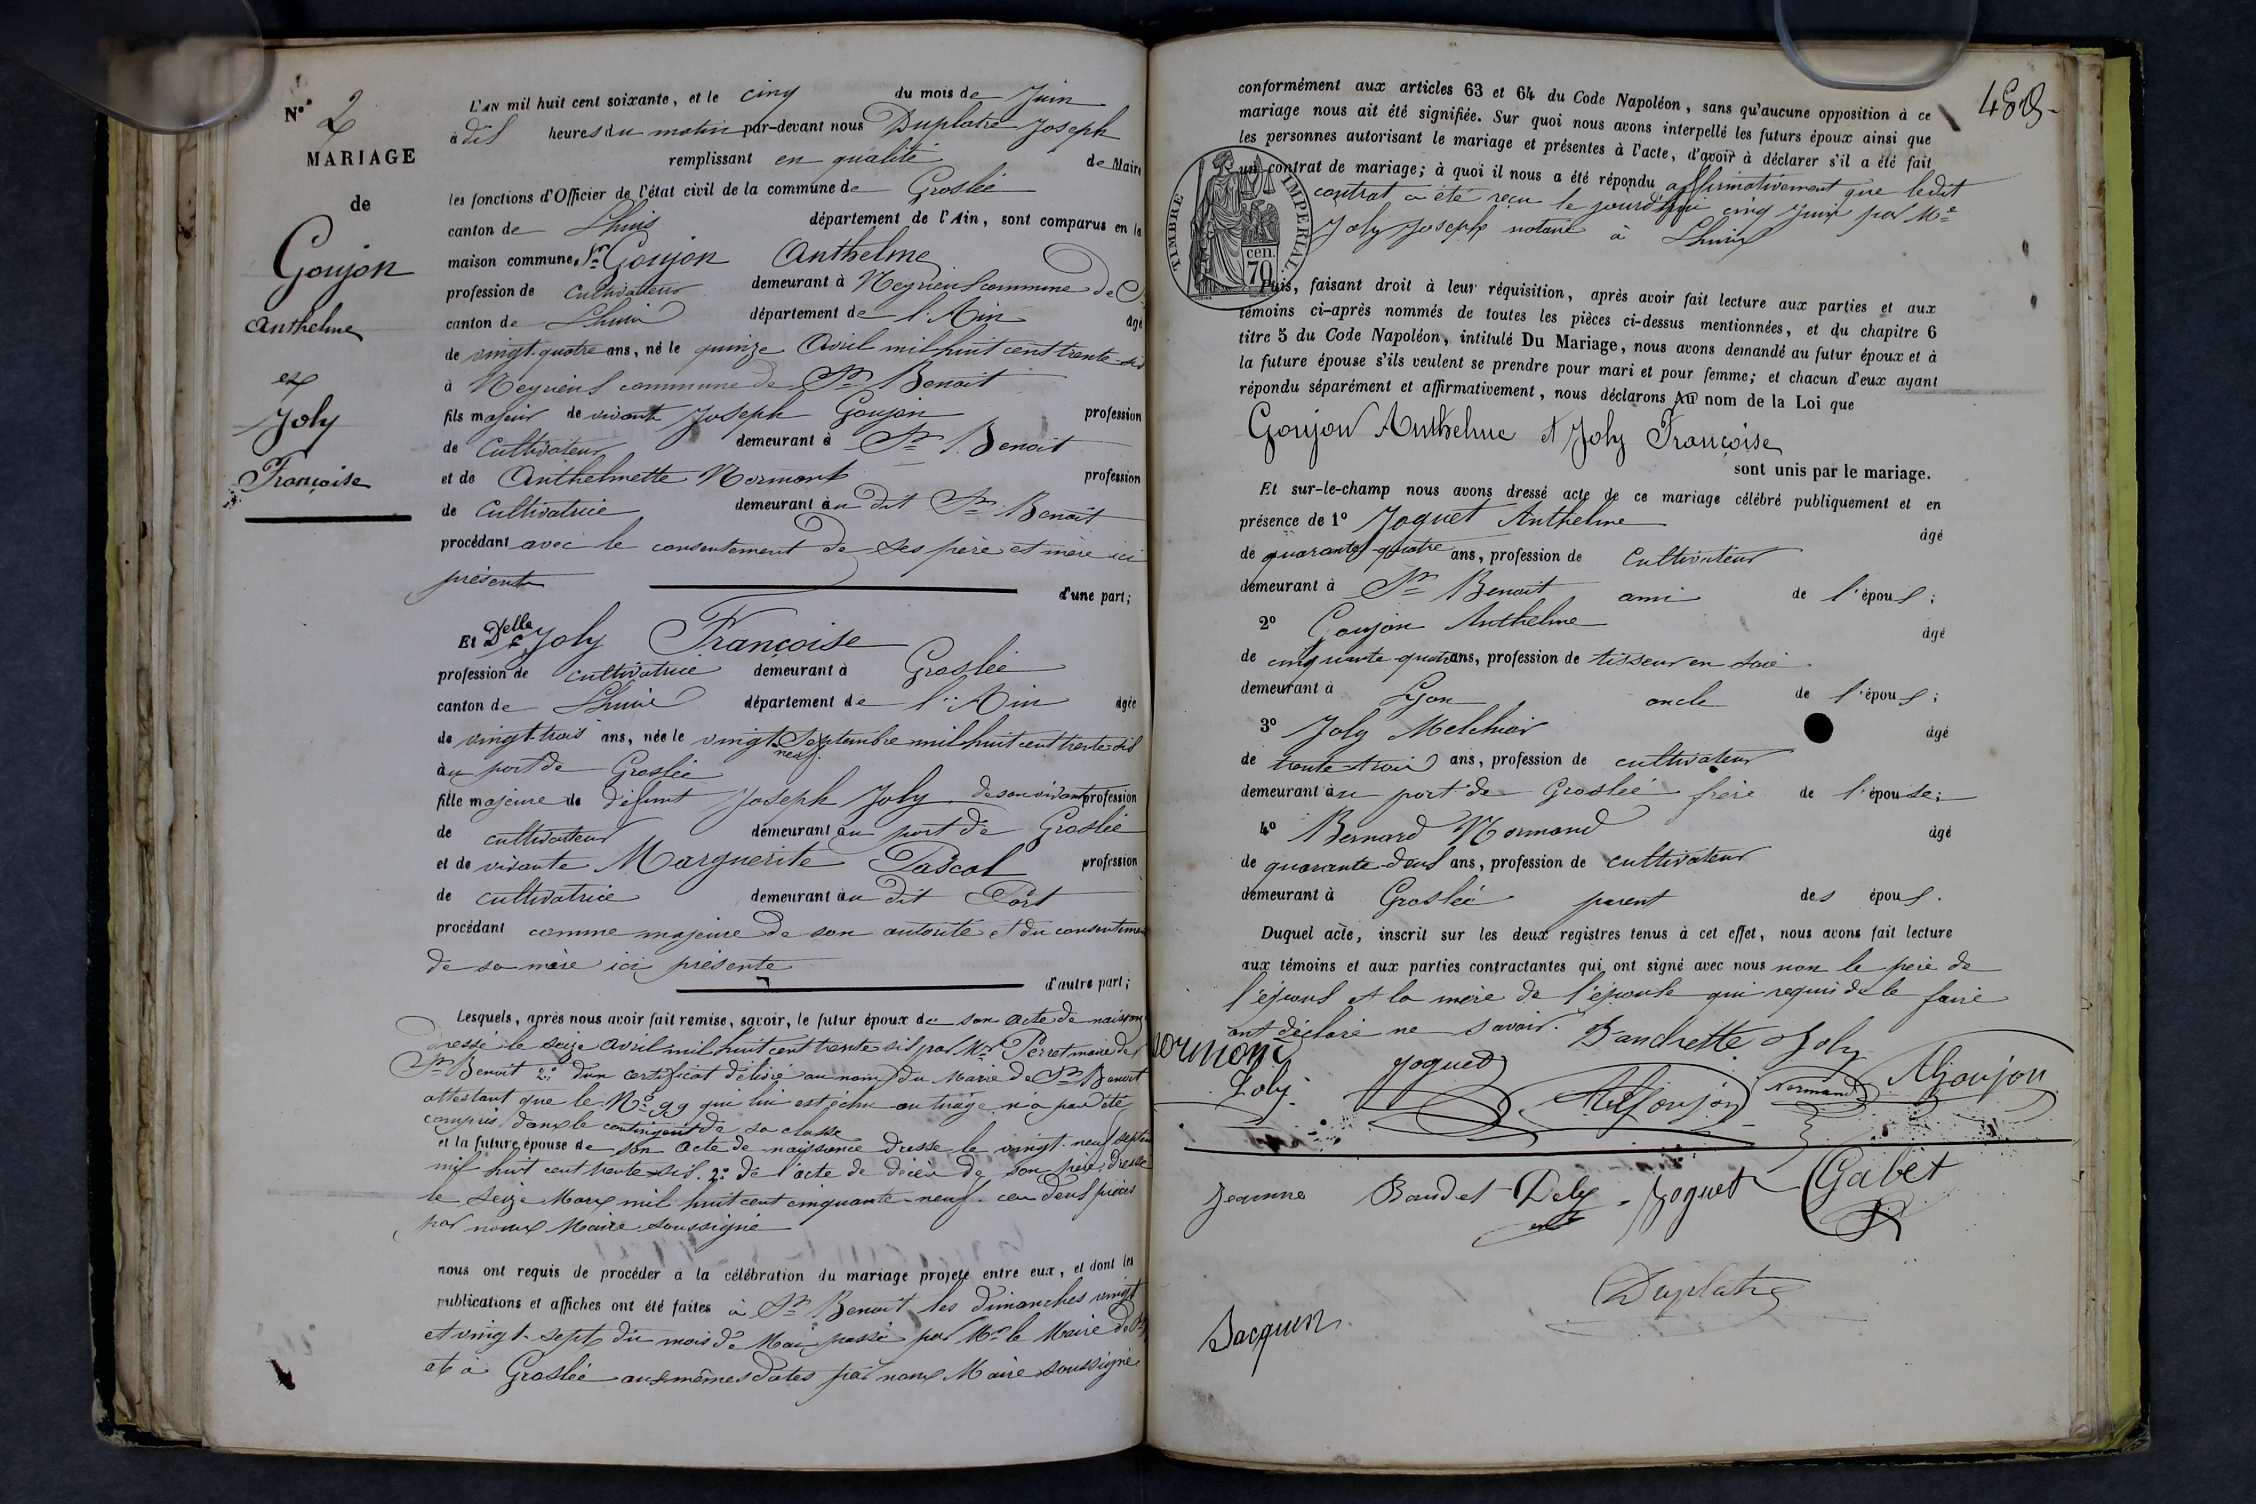 N.° 2
MARIAGE
de
Goujon
Anthelme
et
Joly
Françoise
L'AN mil huit cent soixante, et le cinq du mois de Juin
à dix heures du matin par-devant nous Duplatre Joseph
remplissant en qualité de Maire
les fonctions d'Officier de l'état civil de la commune de Groslée
canton de Lhuis département de l'Ain, sont comparus en la
maison commune, Sr Goujon Anthelme
profession de cultivateur demeurant à Neyrieux commune de St
canton de Lhuis département de l'Ain âgé
de vingt-quatre ans, né le quinze Avril mil huit cent trente-six
à Neyrieux commune de St Benoit
fils majeur de vivants Joseph Goujon profession
de Cultivateur demeurant à St Benoit
et de Anthelmette Normant profession
de Cultivatrice demeurant au dit St Benoit
procédant avec le consentement de ses père et mère ici
présents d'une part;
Et Delle Joly Françoise
profession de cultivatrice demeurant à Groslée
canton de Lhuis département de l'Ain âgée
de vingt-trois ans, née le vingt neuf Septembre mil huit cent trente six
au port de Groslée
fille majeure de défunt Joseph Joly de son vivant profession
de cultivateur demeurant au port de Groslée
et de vivante Marguerite Pascal profession
de cultivatrice demeurant au dit Port
procédant comme majeure de son autorité et du consentement
de sa mère ici présente
d'autre part;
Lesquels, après nous avoir fait remise, savoir, le futur époux de son acte de naissance
dressé le seize Avril mil huit cent trente six par Mr Perret maire de
St Benoit 2° d'un certificat délivré au nom du Maire de St Benoit
attestant que le N° 99 qui lui est échu au tirage n'a pas été
compris dans le contingent de sa classe
et la future épouse de son acte de naissance dressé le vingt-neuf septem
mil huit cent trente-six. 2° de l'acte de décès de son père, dressé
le seize Mars mil huit cent cinquante-neuf. ces deux pièces
par nous Maire soussigné
nous ont requis de procéder à la célébration du mariage projeté entre eux, et dont les
publications et affiches ont été faites à St Benoit les dimanches vingt
et vingt-sept du mois de Mai passé par Mr le Maire de St
et à Groslée aux mêmes dates par nous Maire soussigné
conformément aux articles 63 et 64 du Code Napoléon, sans qu'aucune opposition à ce
mariage nous ait été signifiée. Sur quoi nous avons interpellé les futurs époux ainsi que
les personnes autorisant le mariage et présentes à l'acte, d'avoir à déclarer s'il a été fait
un contrat de mariage; à quoi il nous a été répondu affirmativement que ledit
contrat a été reçu le jourd'hui cinq Juin par Me
Joly Joseph notaire à Lhuis
TIMBRE IMPERIAL.
70 cen.
Puis, faisant droit à leur réquisition, après avoir fait lecture aux parties et aux
témoins ci-après nommés de toutes les pièces ci-dessus mentionnées, et du chapitre 6
titre 5 du Code Napoléon, intitulé Du Mariage, nous avons demandé au futur époux et à
la future épouse s'ils veulent se prendre pour mari et pour femme; et chacun d'eux ayant
répondu séparément et affirmativement, nous déclarons Au nom de la Loi que
Goujon Anthelme et Joly Françoise
sont unis par le mariage.
Et sur-le-champ nous avons dressé acte de ce mariage célébré publiquement et en
présence de 1° Joguet Anthelme âgé
de quarante-quatre ans, profession de Cultivateur
demeurant à St Benoit ami de l'époux;
2° Goujon Anthelme âgé
de cinquante-quatre ans, profession de tisseur en soie
demeurant à Lyon oncle de l'époux;
3° Joly Melchior âgé
de trente-trois ans, profession de cultivateur
demeurant au port de Groslée frère de l'épouse;
4° Bernard Normand âgé
de quarante-deux ans, profession de cultivateur
demeurant à Groslée parent des époux.
Duquel acte, inscrit sur les deux registres tenus à cet effet, nous avons fait lecture
aux témoins et aux parties contractantes qui ont signé avec nous non le père de
l'époux et la mère de l'épouse qui requis de le faire
ont déclaré ne savoir.
Joly
Joly
Joguet
Normand
AGoujon
Jeanne Joguet Gabet
Duplatre
Jacquen